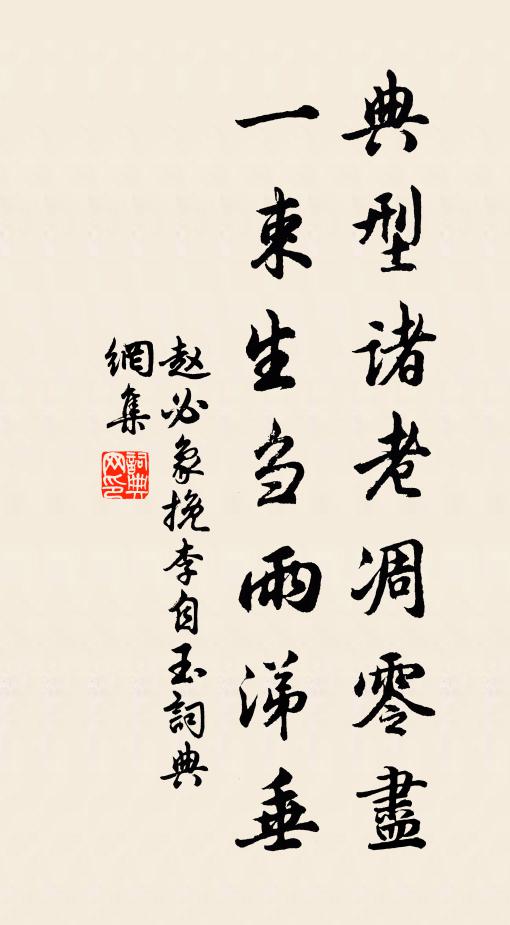 典型诸老凋零盡
一束生刍雨涕垂
赵必象挽李自玉詞典
網集
詞典網印